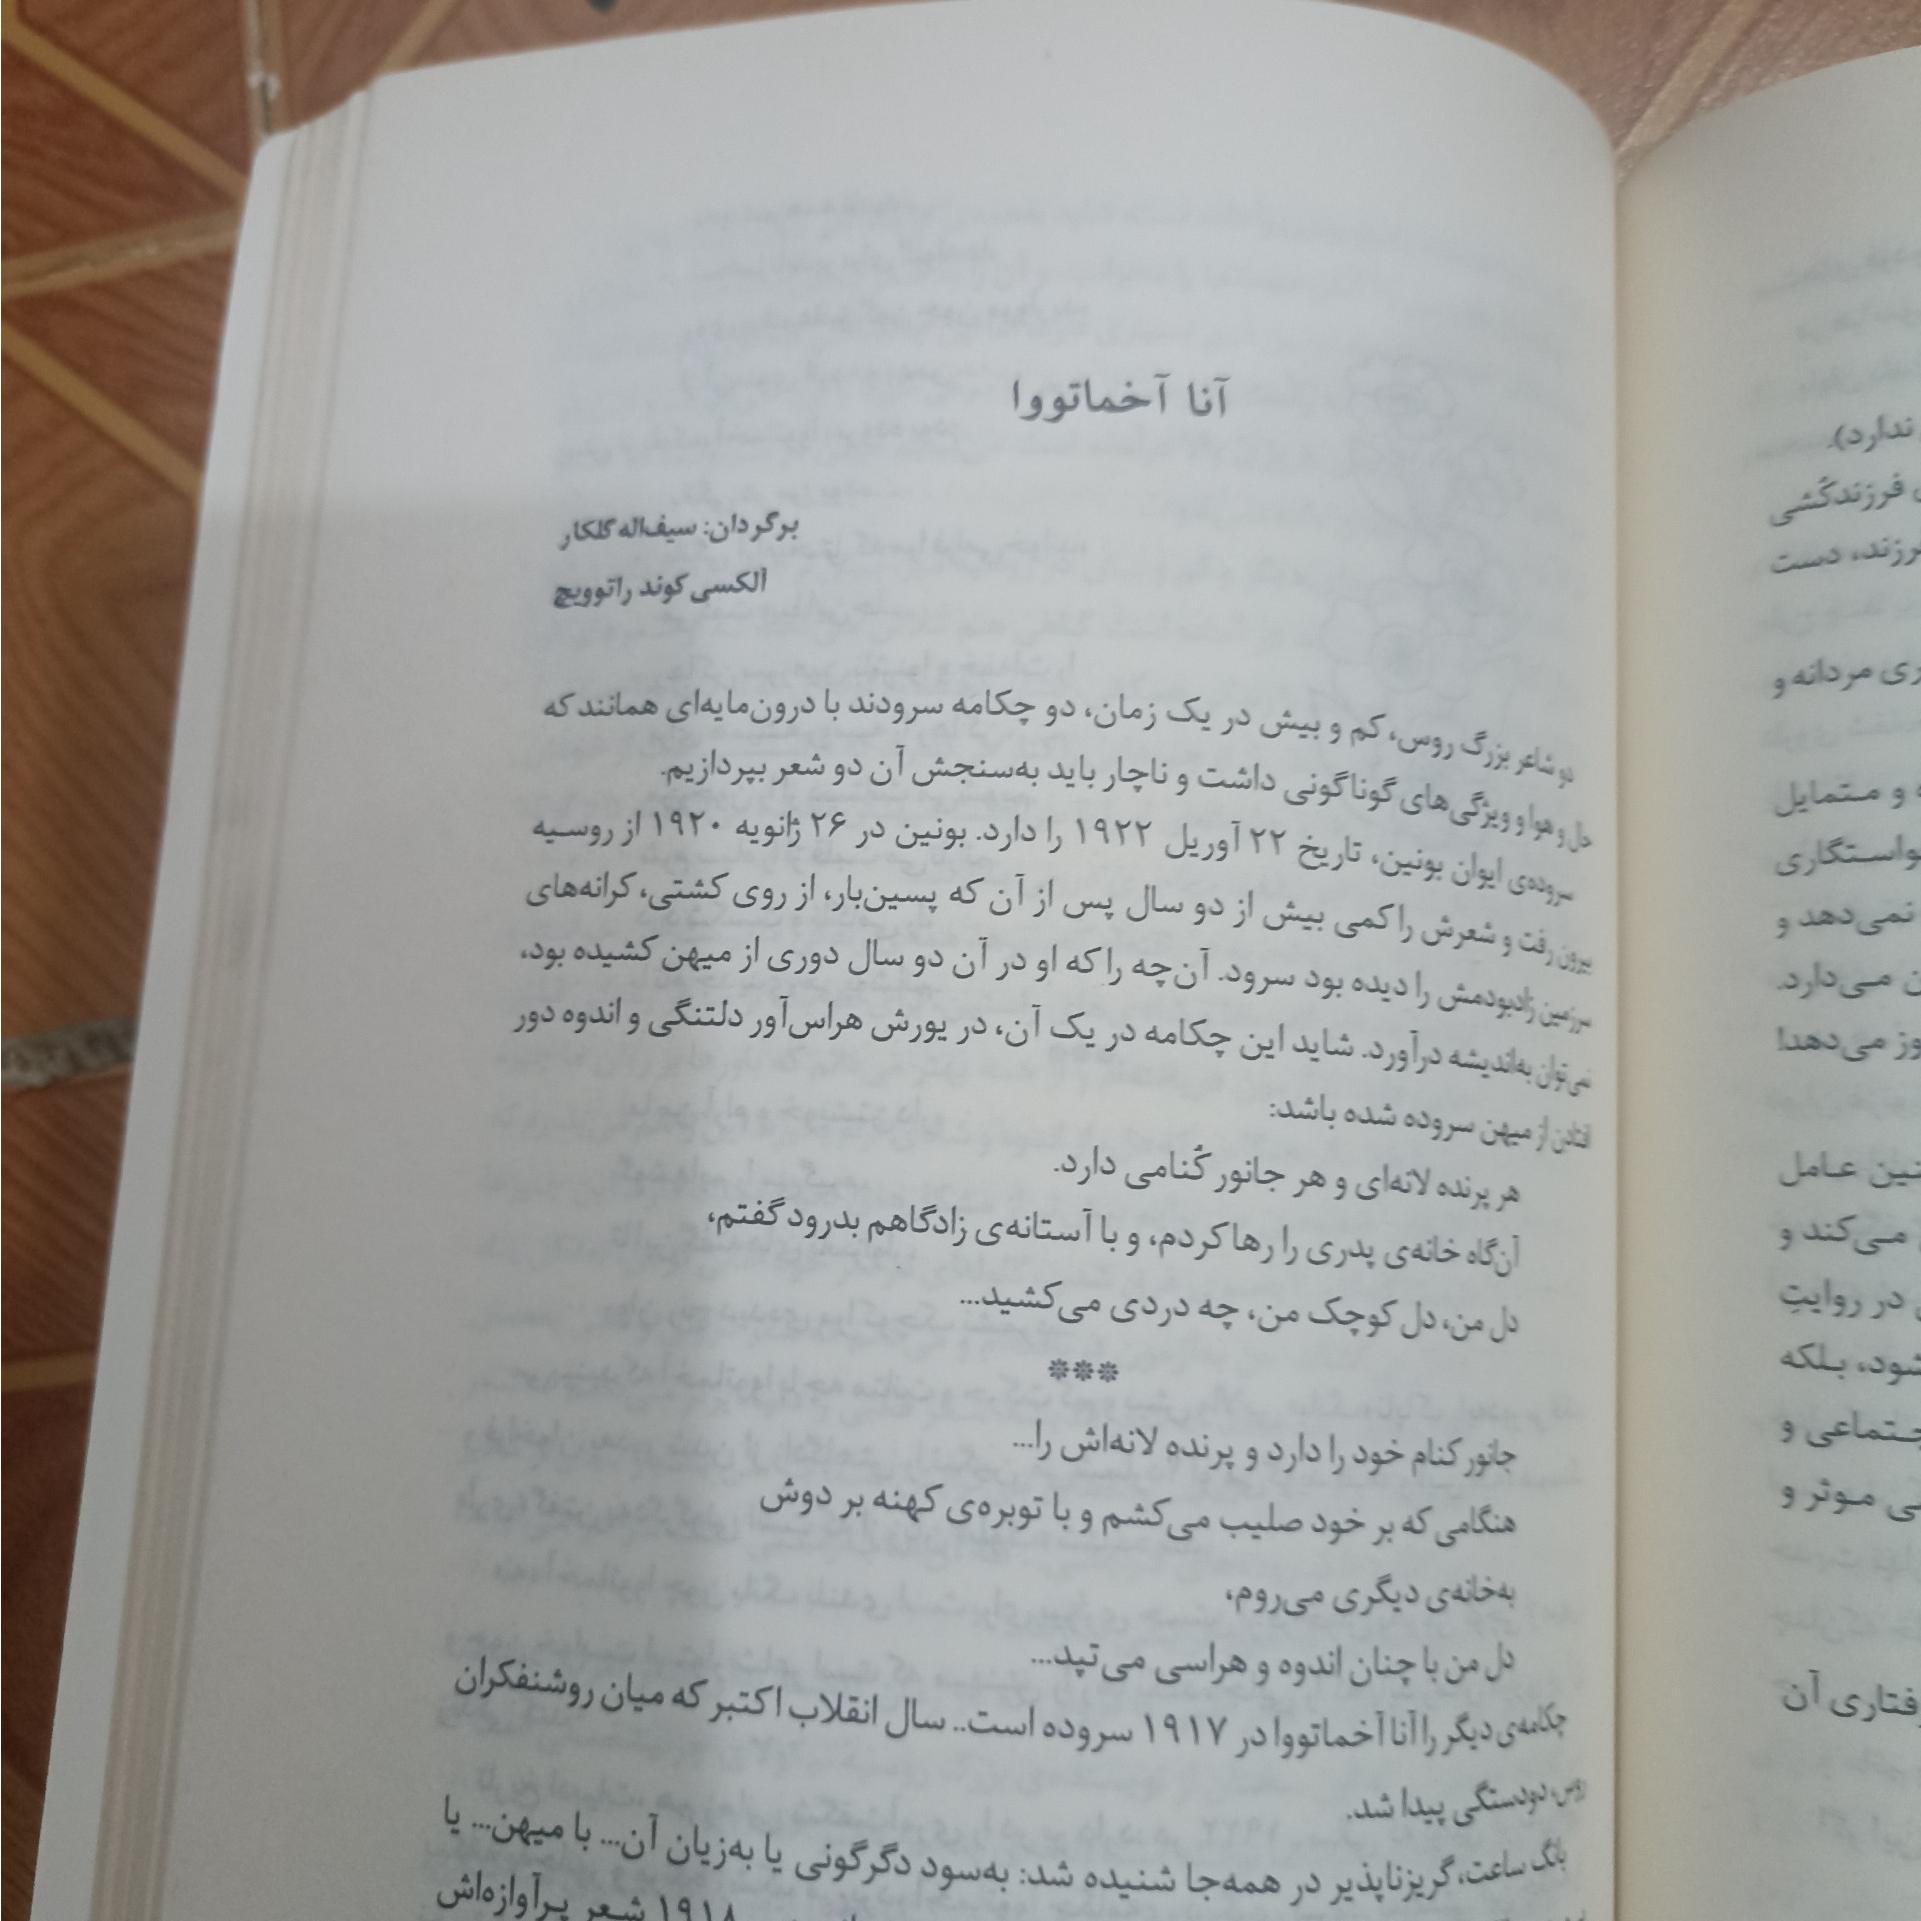 آنا آخماتووا
برگردان: سیف‌اله گلکار
الکسی کوند راتوویچ
دو شاعر بزرگ روس، کم و بیش در یک زمان، دو چکامه سرودند با درون‌مایه‌ای همانند که
حال و هوا و ویژگی‌های گوناگونی داشت و ناچار باید به‌سنجش آن دو شعر بپردازیم.
سروده‌ی ایوان بونین، تاریخ ۲۲ آوریل ۱۹۲۲ را دارد. بونین در ۲۶ ژانویه ۱۹۲۰ از روسیه
بیرون رفت و شعرش را کمی بیش از دو سال پس از آن که پسین‌بار، از روی کشتی، کرانه‌های
سرزمین زادبودمش را دیده بود سرود. آن‌چه را که او در آن دو سال دوری از میهن کشیده بود،
نمی‌توان به‌اندیشه درآورد. شاید این چکامه در یک آن، در یورش هراس‌آور دلتنگی و اندوه دور
افتادن از میهن سروده شده باشد:
هر پرنده لانه‌ای و هر جانور کُنامی دارد.
آن‌گاه خانه‌ی پدری را رها کردم، و با آستانه‌ی زادگاهم بدرود گفتم،
دل من، دل کوچک من، چه دردی می‌کشید...
***
جانور کنام خود را دارد و پرنده لانه‌اش را...
هنگامی که بر خود صلیب می‌کشم و با توبره‌ی کهنه بر دوش
به‌خانه‌ی دیگری می‌روم،
دل من با چنان اندوه و هراسی می‌تپد...
چکامه‌ی دیگر را آنا آخماتووا در ۱۹۱۷ سروده است.. سال انقلاب اکتبر که میان روشنفکران
روس، دودستگی پیدا شد.
بانگ ساعت، گریزناپذیر در همه‌جا شنیده شد: به‌سود دگرگونی یا به‌زیان آن... با میهن... یا
۱۹۱۸ شعر پرآوازه‌اش
ندارد).
فرزندکُشی
فرزند، دست
مردانه و
و متمایل
خواستگاری
نمی‌دهد و
می‌دارد.
می‌دهد!
عامل
می‌کند و
در روایتِ
بلکه
اجتماعی و
موثر و
آن